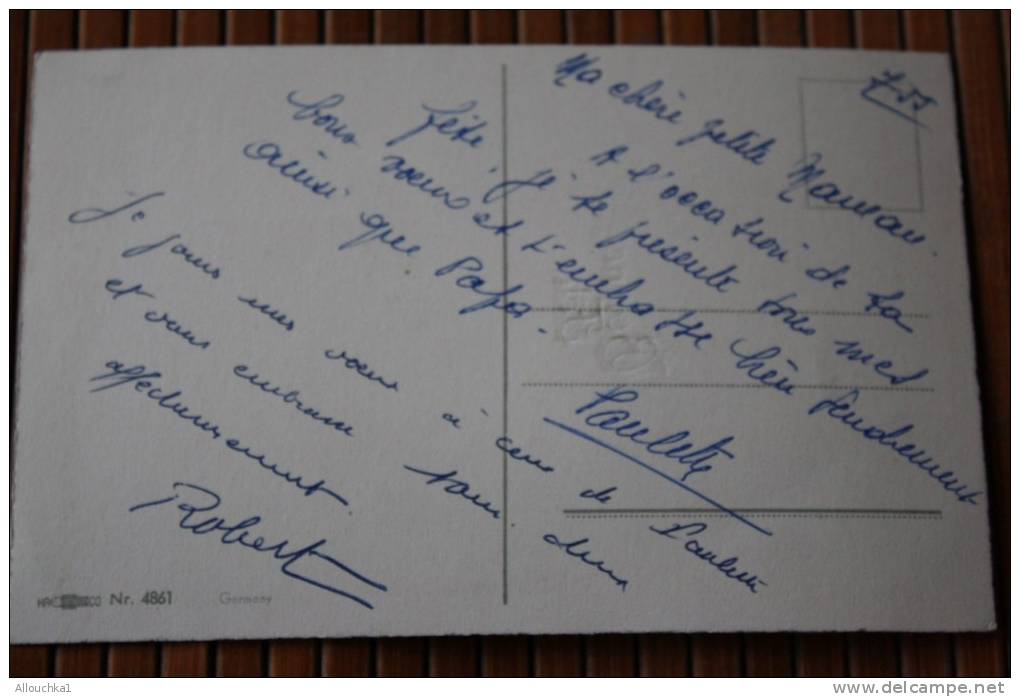 7-55
Ma chère petite Maman.
A l'occation de ta
fête, je te présente tous mes
bons voeux et t'embrasse bien tendrement
ainsi que Papa.
Paulette
Je joins mes voeux à ceux de Paulette
et vous embrasse tous deux
affectueusement
Robert
Nr. 4861 Germany
Allouchka1
www.delcampe.net